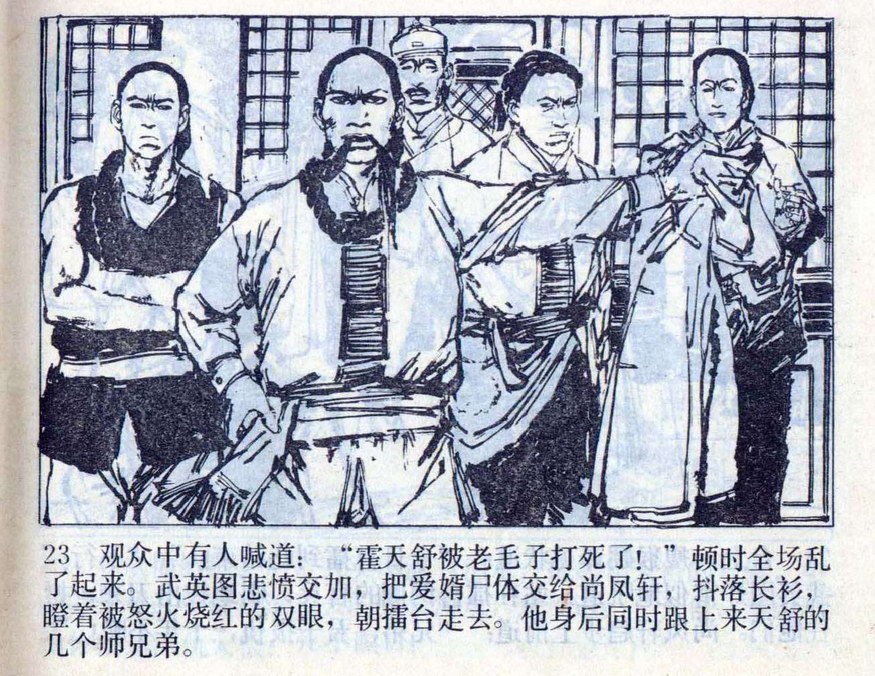 23 观众中有人喊道：“霍天舒被老毛子打死了！”顿时全场乱
了起来。武英图悲愤交加，把爱婿尸体交给尚凤轩，抖落长衫，
瞪着被怒火烧红的双眼，朝擂台走去。他身后同时跟上来天舒的
几个师兄弟。